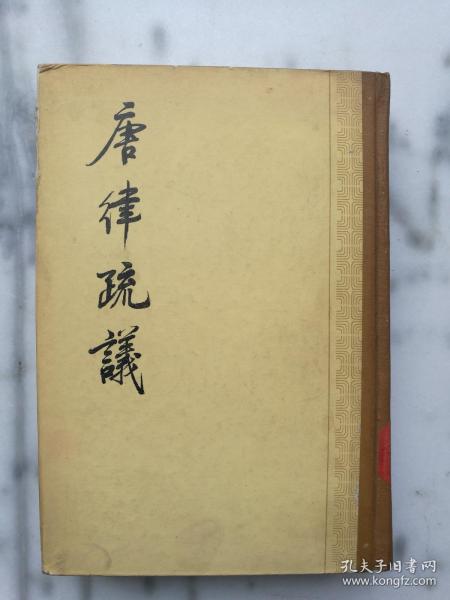 唐律疏議
孔夫子旧书网
www.kongfz.com